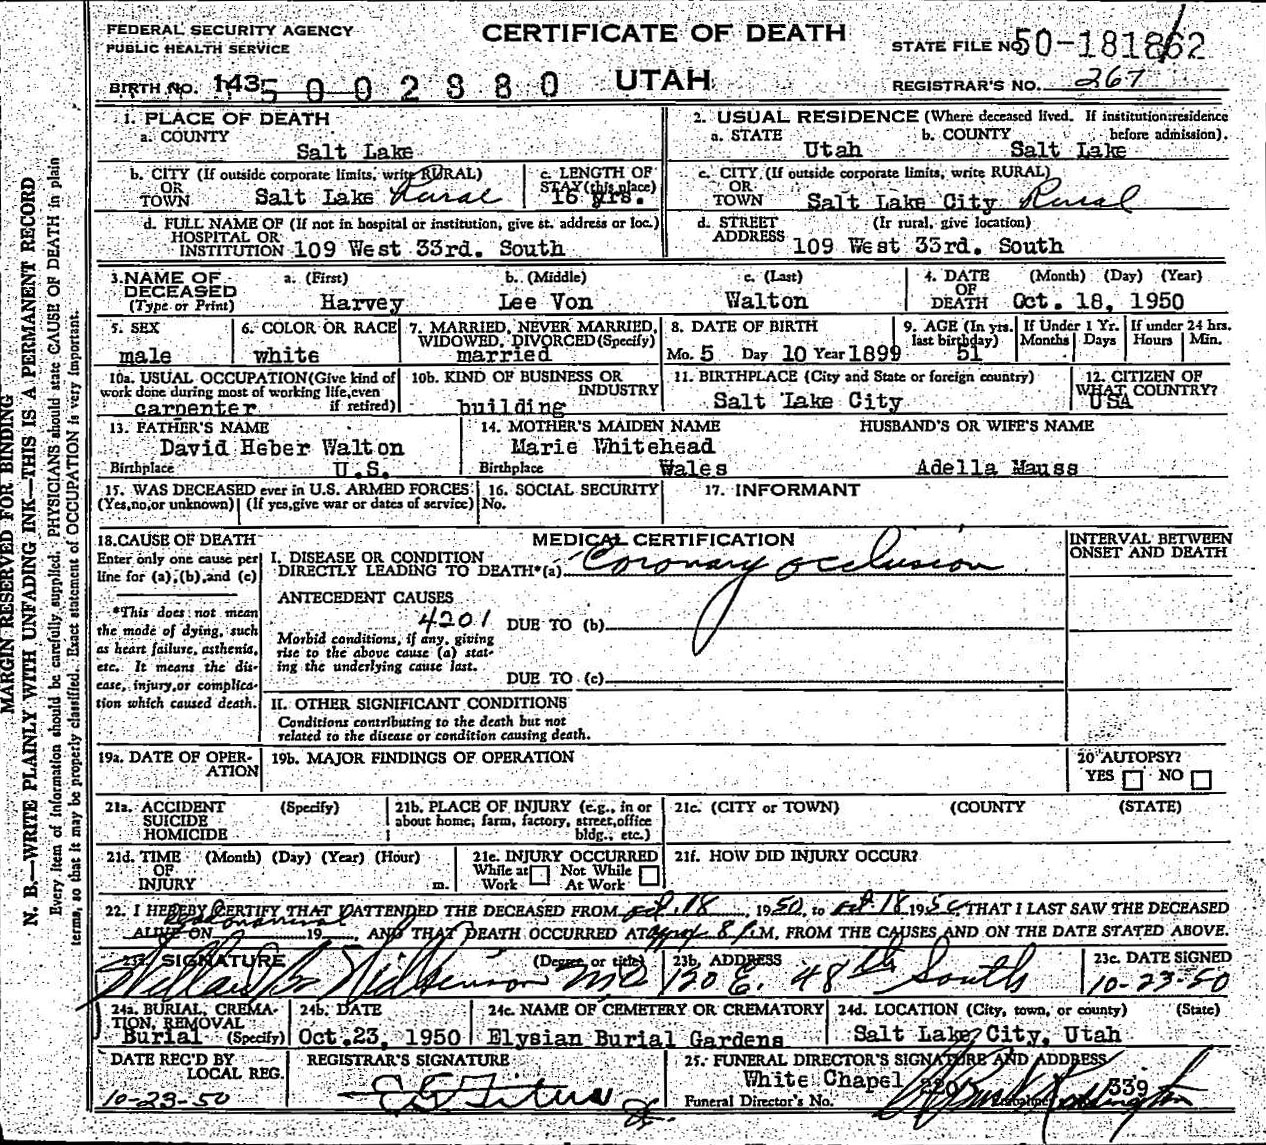 FEDERAL SECURITY AGENCY
PUBLIC HEALTH SERVICE
CERTIFICATE OF DEATH
UTAH
STATE FILE NO. 50-181862
REGISTRAR'S NO. 267
BIRTH NO. 143 5002880
MARGIN RESERVED FOR BINDING
N. B.—WRITE PLAINLY WITH UNFADING INK—THIS IS A PERMANENT RECORD
Every item of information should be carefully supplied. PHYSICIANS should state CAUSE OF DEATH in plain
terms, so that it may be properly classified. Exact statement of OCCUPATION is very important.
1. PLACE OF DEATH
a. COUNTY
Salt Lake
2. USUAL RESIDENCE (Where deceased lived. If institution:residence
a. STATE b. COUNTY before admission).
Utah Salt Lake
b. CITY (If outside corporate limits, write RURAL)
OR
TOWN Salt Lake Rural
c. LENGTH OF
STAY (this place)
16 yrs.
c. CITY (If outside corporate limits, write RURAL)
OR
TOWN Salt Lake City Rural
d. FULL NAME OF (If not in hospital or institution, give st. address or loc.)
HOSPITAL OR
INSTITUTION 109 West 33rd. South
d. STREET (If rural, give location)
ADDRESS 109 West 33rd. South
3. NAME OF DECEASED (Type or Print)
a. (First) b. (Middle) c. (Last)
Harvey Lee Von Walton
4. DATE OF DEATH (Month) (Day) (Year)
Oct. 18, 1950
5. SEX
male
6. COLOR OR RACE
white
7. MARRIED, NEVER MARRIED,
WIDOWED, DIVORCED (Specify)
married
8. DATE OF BIRTH
Mo. 5 Day 10 Year 1899
9. AGE (In yrs.
last birthday)
51
If Under 1 Yr.
Months Days
If under 24 hrs.
Hours Min.
10a. USUAL OCCUPATION (Give kind of
work done during most of working life, even
if retired)
carpenter
10b. KIND OF BUSINESS OR
INDUSTRY
building
11. BIRTHPLACE (City and State or foreign country)
Salt Lake City
12. CITIZEN OF
WHAT COUNTRY?
USA
13. FATHER'S NAME
David Heber Walton
Birthplace U.S.
14. MOTHER'S MAIDEN NAME
Marie Whitehead
Birthplace Wales
HUSBAND'S OR WIFE'S NAME
Adella Mauss
15. WAS DECEASED ever in U.S. ARMED FORCES
(Yes, no, or unknown) (If yes, give war or dates of service)
16. SOCIAL SECURITY
No.
17. INFORMANT
18. CAUSE OF DEATH
Enter only one cause per
line for (a), (b), and (c)
*This does not mean
the mode of dying, such
as heart failure, asthenia,
etc. It means the dis-
ease, injury, or complica-
tion which caused death.
MEDICAL CERTIFICATION
INTERVAL BETWEEN
ONSET AND DEATH
I. DISEASE OR CONDITION
DIRECTLY LEADING TO DEATH*(a) Coronary occlusion
ANTECEDENT CAUSES
4201 DUE TO (b)
Morbid conditions, if any, giving
rise to the above cause (a) stat-
ing the underlying cause last.
DUE TO (c)
II. OTHER SIGNIFICANT CONDITIONS
Conditions contributing to the death but not
related to the disease or condition causing death.
19a. DATE OF OPER-
ATION
19b. MAJOR FINDINGS OF OPERATION
20 AUTOPSY?
YES NO
21a. ACCIDENT (Specify)
SUICIDE
HOMICIDE
21b. PLACE OF INJURY (e.g., in or
about home, farm, factory, street, office
bldg., etc.)
21c. (CITY or TOWN) (COUNTY (STATE)
21d. TIME (Month) (Day) (Year) (Hour)
OF
INJURY m.
21e. INJURY OCCURRED
While at Not While
Work At Work
21f. HOW DID INJURY OCCUR?
22. I HEREBY CERTIFY THAT I ATTENDED THE DECEASED FROM Oct. 18, 1950, to Oct 18, 1950, THAT I LAST SAW THE DECEASED
ALIVE ON 19 AND THAT DEATH OCCURRED AT approx 8 P.M. FROM THE CAUSES AND ON THE DATE STATED ABOVE.
23a. SIGNATURE (Degree or title)
Willard B. Wilkinson M.D.
23b. ADDRESS
120 E. 48th South
23c. DATE SIGNED
10-23-50
24a. BURIAL, CREMA-
TION, REMOVAL
Burial (Specify)
24b. DATE
Oct. 23, 1950
24c. NAME OF CEMETERY OR CREMATORY
Elysian Burial Gardens
24d. LOCATION (City, town, or county) (State)
Salt Lake City, Utah
DATE REC'D BY
LOCAL REG.
10-23-50
REGISTRAR'S SIGNATURE
25. FUNERAL DIRECTOR'S SIGNATURE AND ADDRESS
White Chapel
Funeral Director's No. 339